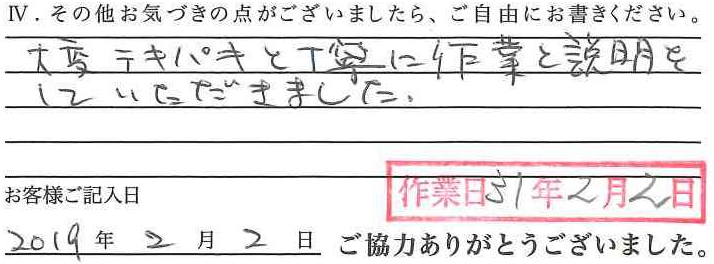 Ⅳ．その他お気づきの点がございましたら、ご自由にお書きください。
大変テキパキと丁寧に作業と説明を
していただきました。
お客様ご記入日
作業日31年2月2日
2019年2月2日 ご協力ありがとうございました。